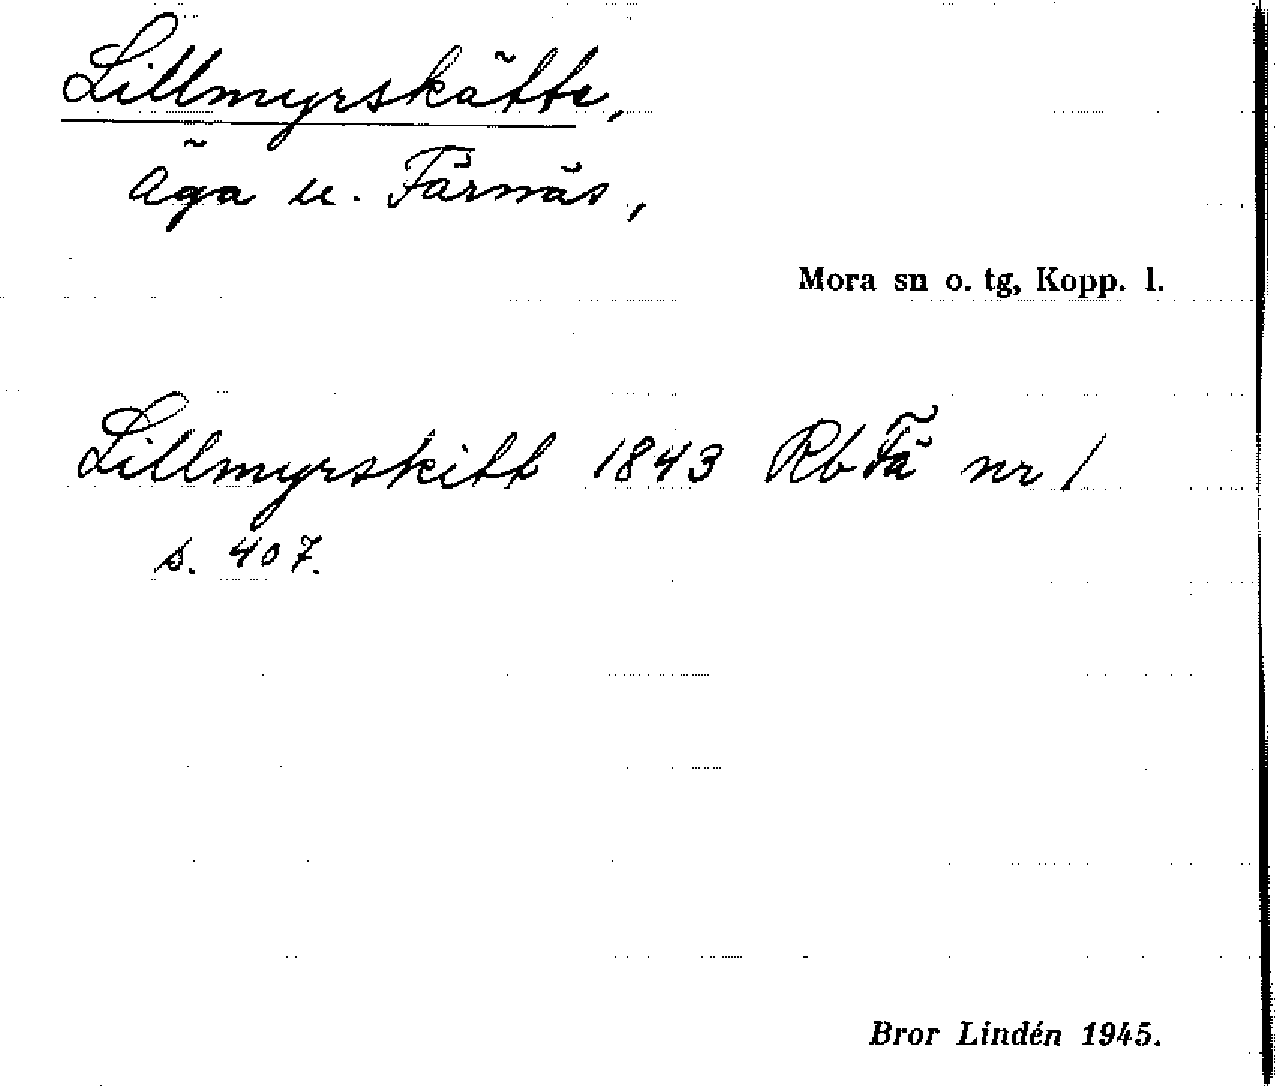 Lillmyrskätte,
Äga u. Färnäs,
Mora sn o. tg, Kopp. l.
Lillmyrskitt 1843 Rb Fä nr 1
s. 407.
Bror Lindén 1945.